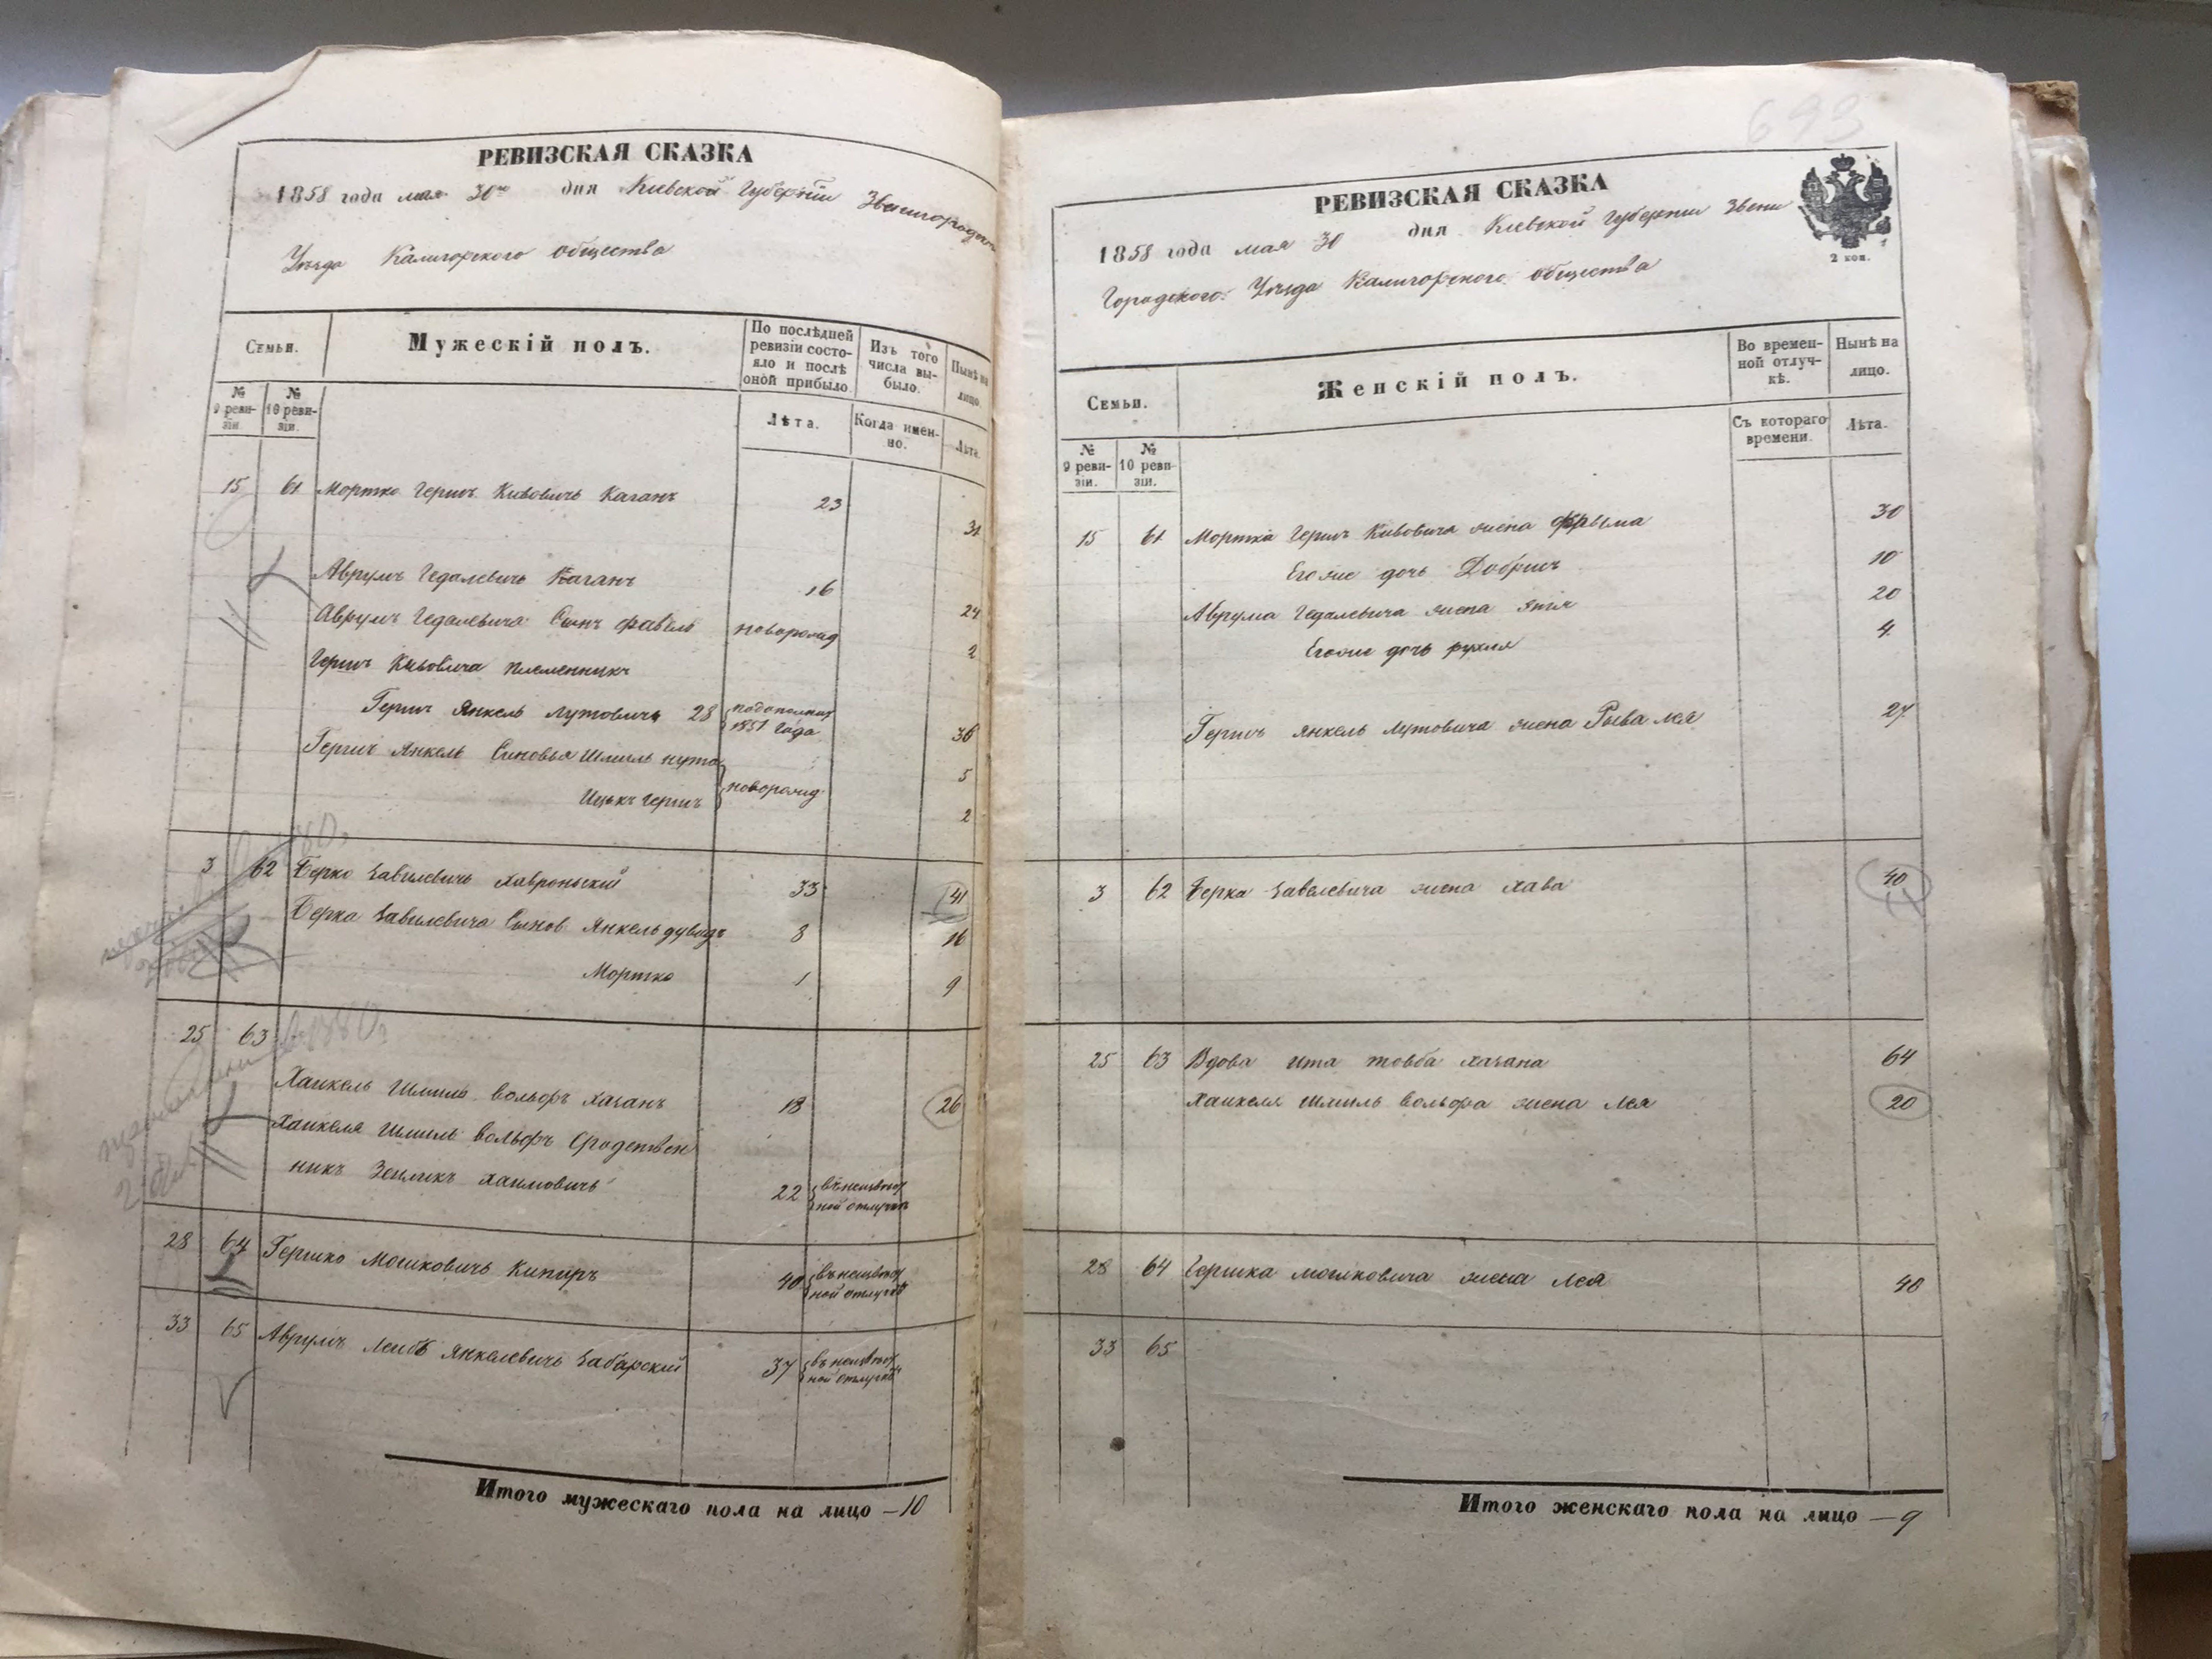 РЕВИЗСКАЯ СКАЗКА
1858 года мая 30го дня Киевской Губерніи Звенигородск
Уезда Калигорского общества
Семьи.
Мужескій полъ.
По послѣдней ревизіи состо-
яло и послѣ оной прибыло.
Изъ того числа вы-
было.
Нынѣ на лицо.
№ 9 реви-
зіи.
№ 10 реви-
зіи.
Лѣта.
Когда имен-
но.
Лѣта.
15 61 Мортко Герш Кивовичъ Каганъ 23 31
Аврумъ Гедалевичъ Каганъ 16 24
Аврумъ Гедалевича Сынъ фавель новорожд 2
Гершъ Кивовича племенникъ
Гершъ Янкель Лутовичъ 28 1851 года 36
Гершъ Янкель Сыновья Шмиль нута 5
Ицыкъ Гершъ новорожд 2
3 62 Берко Завилевичъ Хавронский 33 41
Берка Завилевича Сынов Янкель дувидъ 8 16
Мортко 1 9
25 63
Хаикель Шмиль вольфъ Хаганъ 18 26
Хаикеля Шмиль вольфъ Сродствен
никъ Зеиликъ Хаимовичъ 22 въ неизвѣст
ной отлучкѣ
28 64 Гершко Мошковичъ Кипиръ 40 въ неизвѣст
ной отлучкѣ
33 65 Аврумъ Леибъ Янкелевичъ Забарский 37 въ неизвѣст
ной отлучкѣ
Итого мужескаго пола на лицо —10
693
РЕВИЗСКАЯ СКАЗКА
2 коп.
1858 года мая 30 дня Киевской Губернии Звени
Городского Уезда Калигорского общества
Семьи.
Женскій полъ.
Во времен-
ной отлуч-
кѣ.
Нынѣ на лицо.
№ 9 реви-
зіи.
№ 10 реви-
зіи.
Съ котораго времени.
Лѣта.
15 61 Мортка Герш Кивовича жена фрыма 30
Его же дочь Добришъ 10
Аврума Гедалевича жена 20
Его же дочь рухля 4
Гершъ Янкель Лутовича жена Рыва лея 27
3 62 Берка Завелевича жена Хава 40
25 63 Вдова ита товба хагана 64
Хаикеля Шмиль вольфа жена Лея 20
28 64 Гершка мошковича жена Лея 40
33 65
Итого женскаго пола на лицо —9